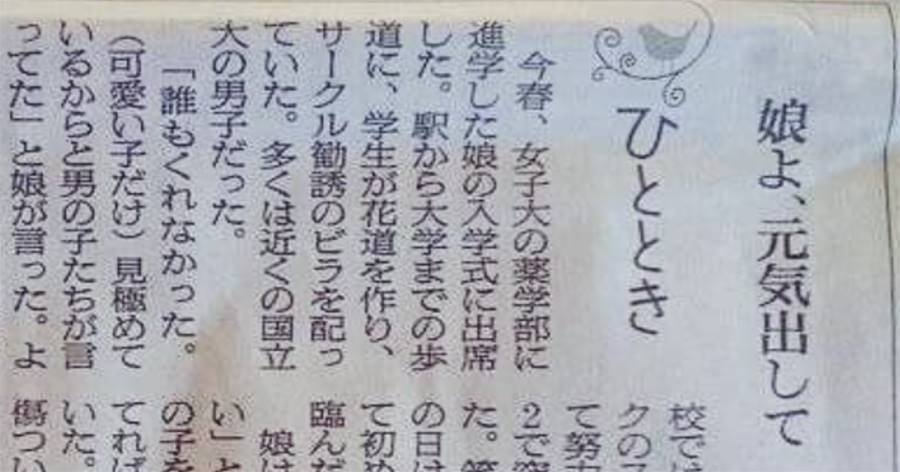 娘よ、元気出して
ひととき
今春、女子大の薬学部に
進学した娘の入学式に出席
した。駅から大学までの歩
道に、学生が花道を作り、
サークル勧誘のビラを配っ
ていた。多くは近くの国立
大の男子だった。
「誰もくれなかった。
(可愛い子だけ)見極めて
いるからと男の子たちが言
ってた」と娘が言った。よ
校では
クのス
て努力
2で突
た。
の日は
て初め
臨んだ
娘は
い」と
の子を
てれば
いた。
傷つい